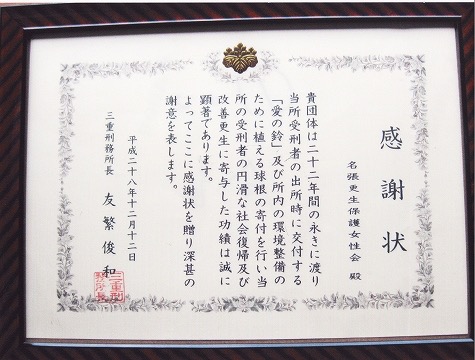 感謝状
名張更生保護女性会 殿
貴団体は二十二年間の永きに渡り
当所受刑者の出所時に交付する
「愛の鈴」及び所内の環境整備の
ために植える球根の寄付を行い当
所の受刑者の円滑な社会復帰及び
改善更生に寄与した功績は誠に
顕著であります。
よってここに感謝状を贈り深甚の
謝意を表します。
平成二十八年十二月十二日
三重刑務所長 友繁俊和